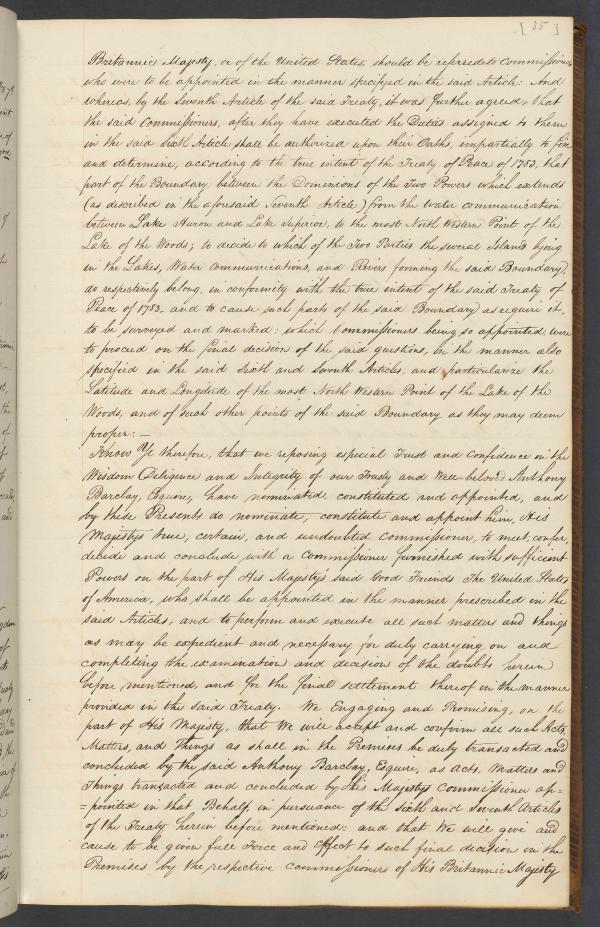 [35]
Britannic Majesty, or of the United States, should be referred to Commissioners
who were to be appointed in the manner specified in the said Article: And
whereas, by the Seventh Article of the said Treaty, it was further agreed, that
the said Commissioners, after they have executed the Duties assigned to them
in the said Sixth Article shall be authorized upon their Oaths, impartially to fix
and determine, according to the true intent of the Treaty of Peace of 1783, that
part of the Boundary between the Dominions of the Two Powers which extends
(as described in the aforesaid Seventh Article) from the water communication
between Lake Huron and Lake Superior, to the most North Western Point of the
Lake of the Woods; to decide to which of the Two Parties the several Islands lying
in the Lakes, Water communications, and Rivers forming the said Boundary,
do respectively belong, in conformity with the true intent of the said Treaty of
Peace of 1783, and to cause such parts of the said Boundary as require it,
to be surveyed and marked: which Commissioners being so appointed were
to proceed on the final decision of the said questions, in the manner also
specified in the said Sixth and Seventh Articles, and particularize the
Latitude and Longitude of the most North Western Point of the Lake of the
Woods, and of such other points of the said Boundary as they may deem
proper: —
Know Ye therefore, that we reposing especial Trust and Confidence in the
Wisdom Diligence and Integrity of our Trusty and Well-beloved Anthony
Barclay, Esquire, have nominated, constituted and appointed, and
by these Presents do nominate, constitute and appoint him, His
Majesty's true, certain, and undoubted Commissioner, to meet, confer,
decide and conclude with a Commissioner furnished with sufficient
Powers on the part of His Majesty's said Good Friends The United States
of America, who shall be appointed in the manner prescribed in the
said Articles, and to perform and execute all such matters and things
as may be expedient and necessary for duly carrying on and
completing the examination and decision of the doubts herein
before mentioned, and for the final settlement thereof in the manner
provided in the said Treaty. We Engaging and Promising, on the
part of His Majesty, that We will accept and confirm all such Acts,
Matters, and Things as shall in the Premises be duly transacted and
concluded by the said Anthony Barclay, Esquire, as Acts, Matters and
Things transacted and concluded by His Majesty's Commissioner ap=
=pointed in that Behalf, in pursuance of the Sixth and Seventh Articles
of the Treaty herein before mentioned: and that We will give and
cause to be given full Force and Effect to such final decision in the
Premises by the respective Commissioners of His Britannic Majesty